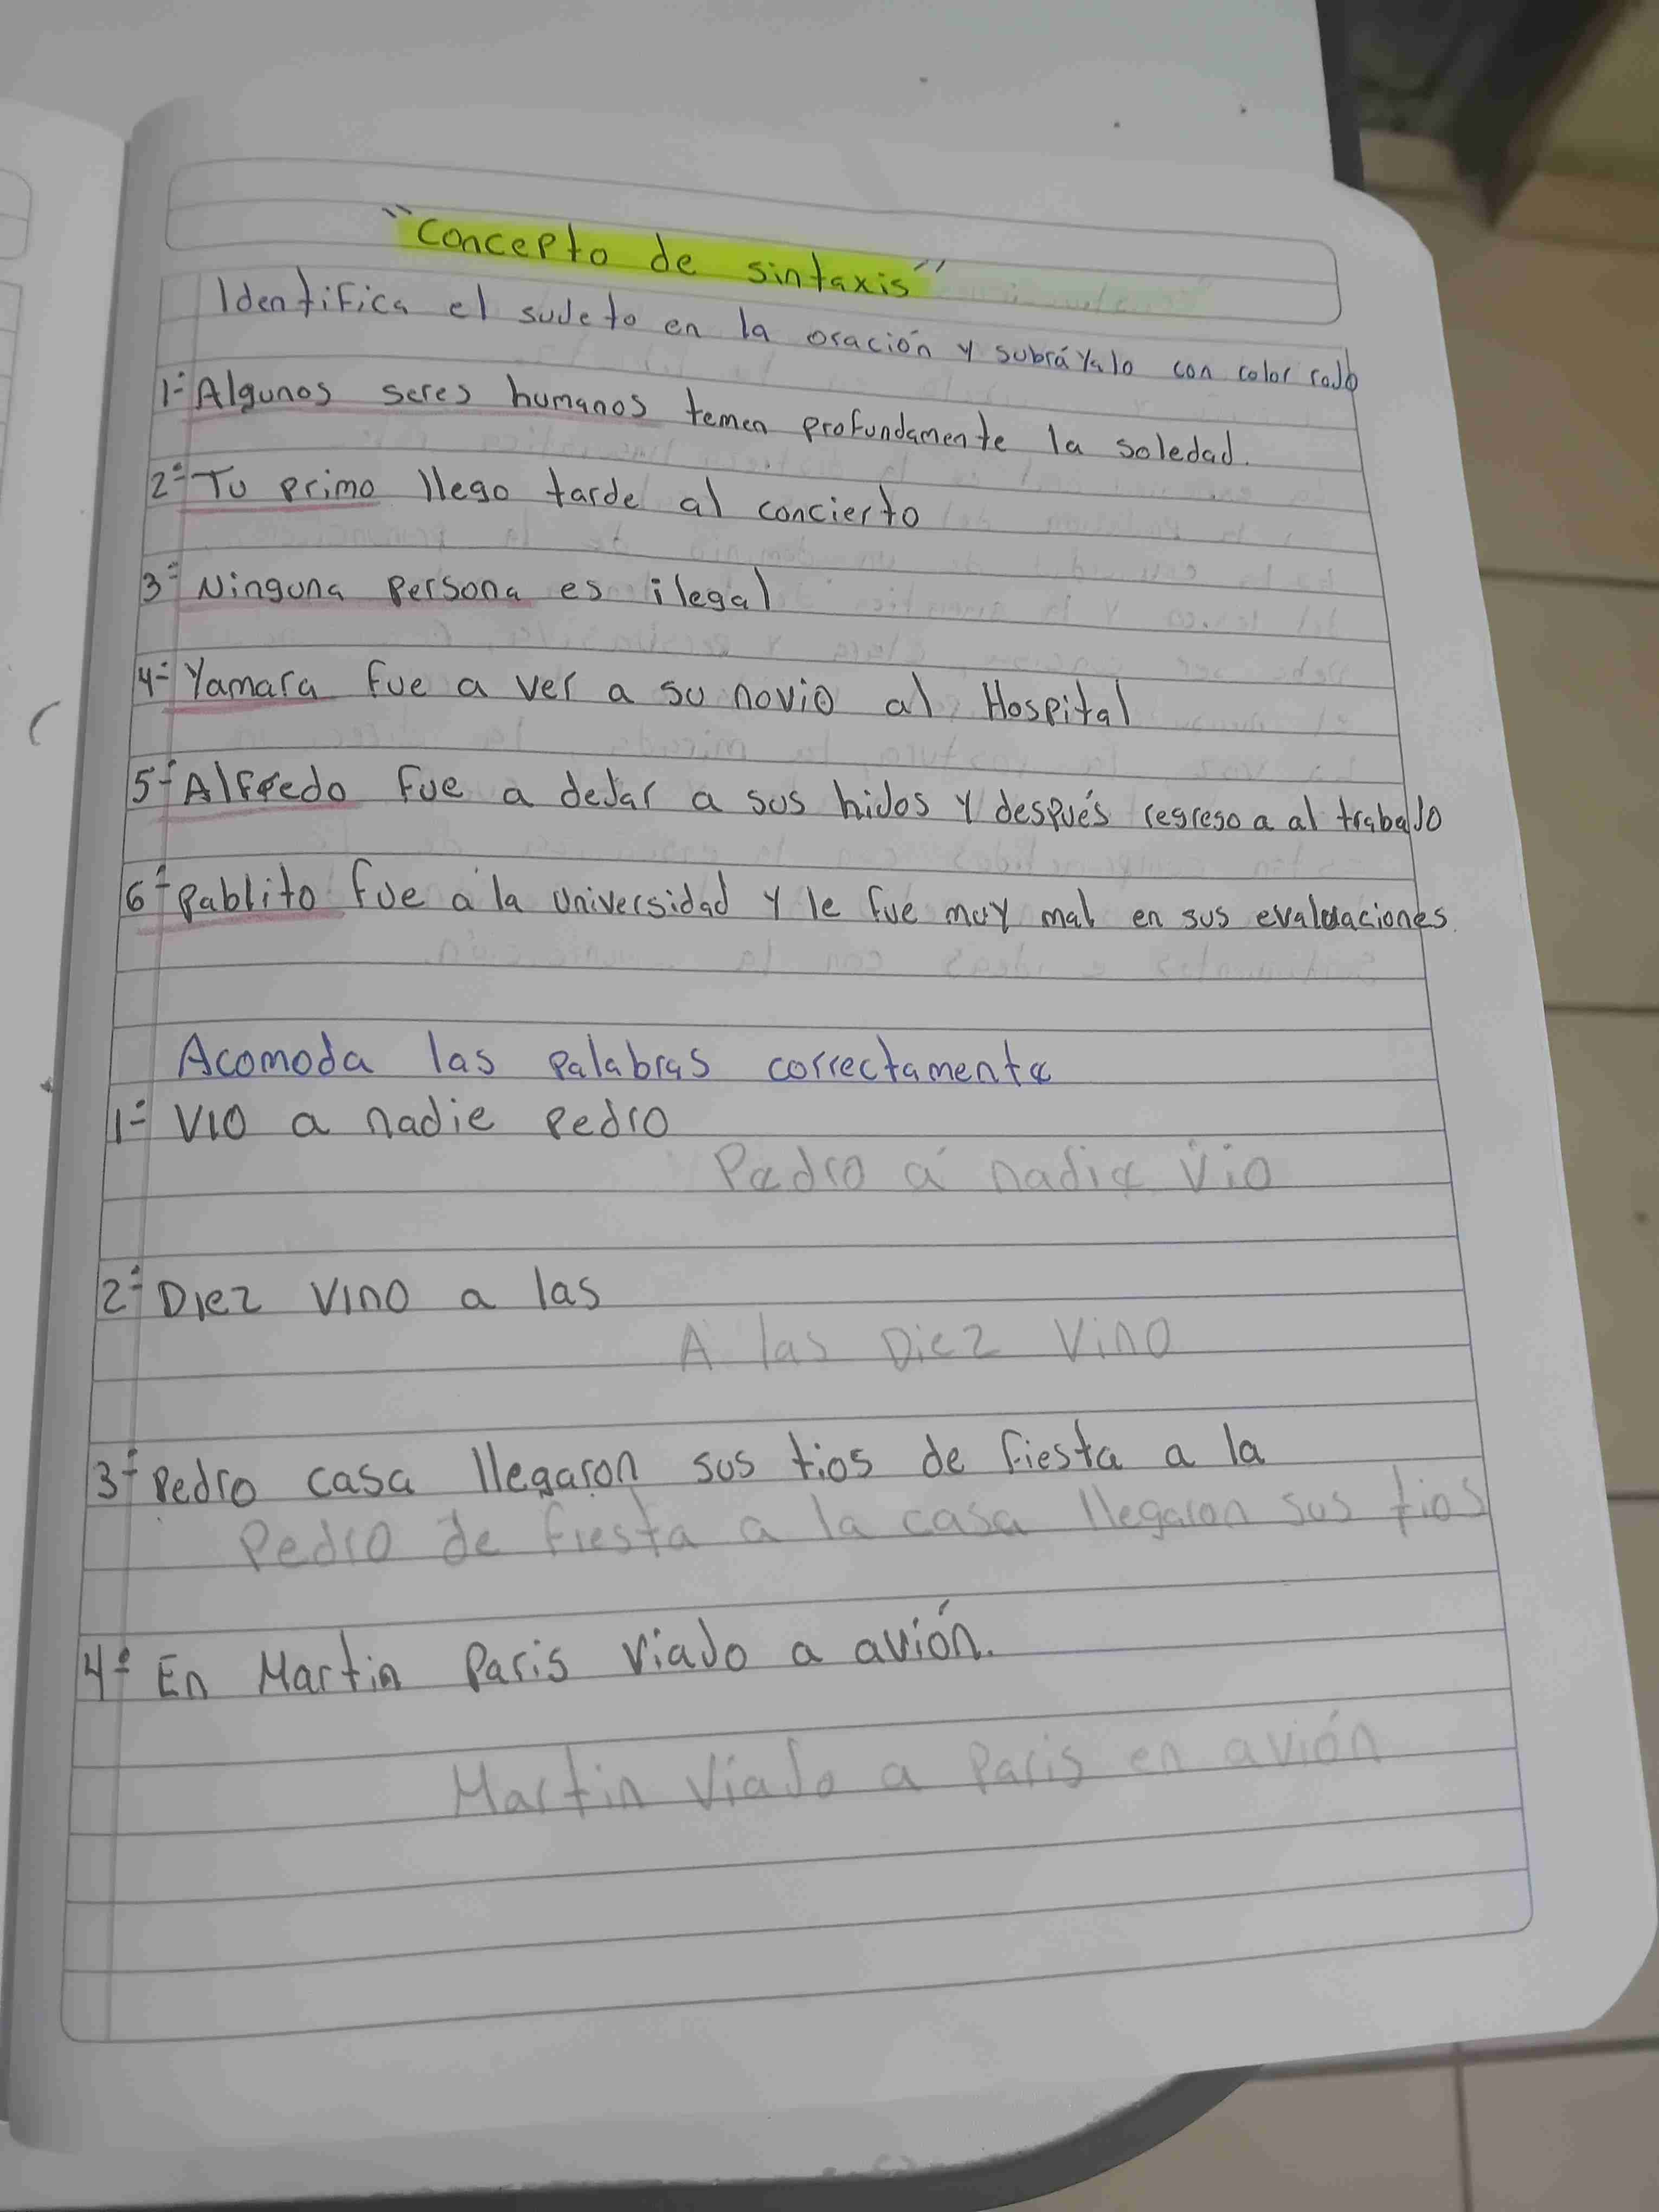 "Concepto de sintaxis"
Identifica el sujeto en la oración y subráyalo con color rojo
1- Algunos seres humanos temen profundamente la soledad.
2- Tu primo llego tarde al concierto
3- Ninguna persona es ilegal
4- Yamara fue a ver a su novio al Hospital
5- Alfredo fue a dejar a sus hijos y después regreso a al trabajo
6- Pablito fue a la universidad y le fue muy mal en sus evaluaciones.
Acomoda las palabras correctamente
1- Vio a nadie Pedro
Pedro a nadie Vio
2- Diez Vino a las
A las Diez Vino
3- Pedro casa llegaron sus tios de fiesta a la
Pedro de fiesta a la casa llegaron sus tios
4- En Martin Paris Viajo a avión.
Martin Viajo a Paris en avión